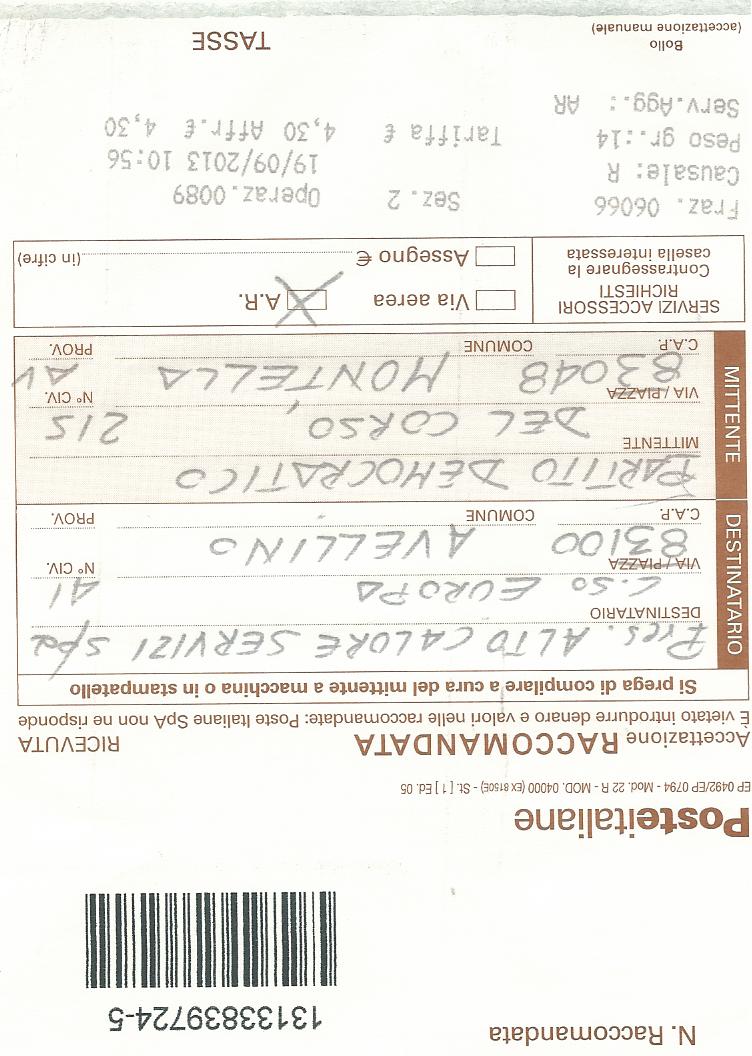 N. Raccomandata
13133839724-5
Posteitaliane
EP 0492/EP 0794 - Mod. 22 R - MOD. 04000 (EX 8150E) - St. [ 1 ] Ed. 05
Accettazione RACCOMANDATA RICEVUTA
È vietato introdurre denaro e valori nelle raccomandate: Poste Italiane SpA non ne risponde
Si prega di compilare a cura del mittente a macchina o in stampatello
DESTINATARIO
Pres. ALTO CALORE SERVIZI SpA
DESTINATARIO
C.SO EUROPA 41
VIA / PIAZZA N° CIV.
83100 AVELLINO
C.A.P. COMUNE PROV.
MITTENTE
PARTITO DEMOCRATICO
MITTENTE
DEL CORSO 215
VIA / PIAZZA N° CIV.
83048 MONTELLA AV
C.A.P. COMUNE PROV.
SERVIZI ACCESSORI
RICHIESTI
Contrassegnare la
casella interessata
Via aerea A.R.
Assegno € (in cifre)
Fraz. 06066 Sez. 2 Operaz.0089
Causale: R 19/09/2013 10:56
Peso gr.:14 Tariffa € 4,30 Affr.€ 4,30
Serv.Agg.: AR
Bollo
(accettazione manuale)
TASSE